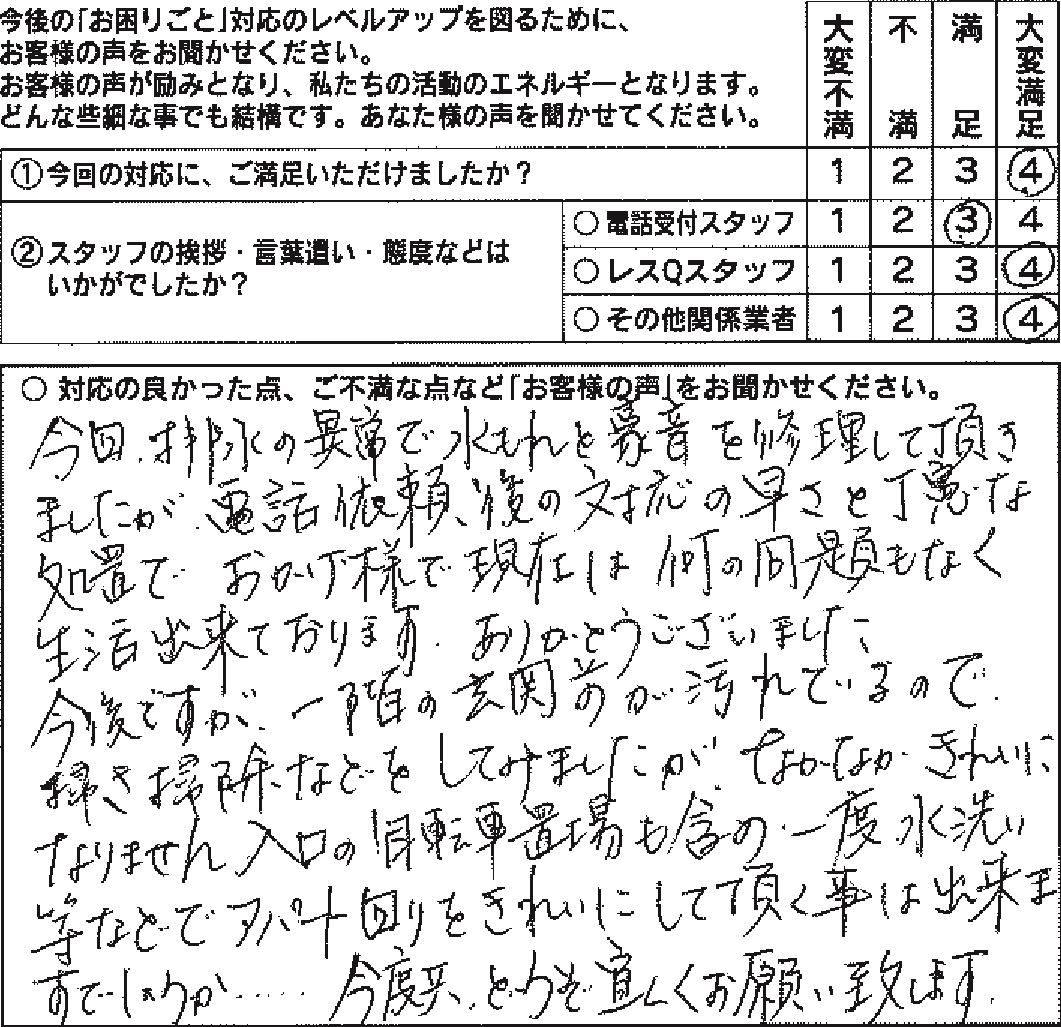 今後の「お困りごと」対応のレベルアップを図るために、
お客様の声をお聞かせください。
お客様の声が励みとなり、私たちの活動のエネルギーとなります。
どんな些細な事でも結構です。あなた様の声を聞かせてください。
大変不満 不満 満足 大変満足
①今回の対応に、ご満足いただけましたか？ 1 2 3 4
②スタッフの挨拶・言葉遣い・態度などは
いかがでしたか？
○ 電話受付スタッフ 1 2 3 4
○ レスQスタッフ 1 2 3 4
○ その他関係業者 1 2 3 4
○ 対応の良かった点、ご不満な点など「お客様の声」をお聞かせください。
今回、排水の異常で水もれと豪音を修理して頂き
ましたが、電話依頼、後の対応の早さと丁寧な
処置で おかげ様で現在は何の問題もなく
生活出来ております。ありがとうございました、
今後ですが、一階の玄関前が汚れているので、
掃き掃除などをしてみましたが、なかなかきれいに
なりません 入口の自転車置場も含め、一度水洗い
等などでアパート回りをきれいにして頂く事は出来ま
すでしょうか…… 今度共、どうぞ宜しくお願い致します。